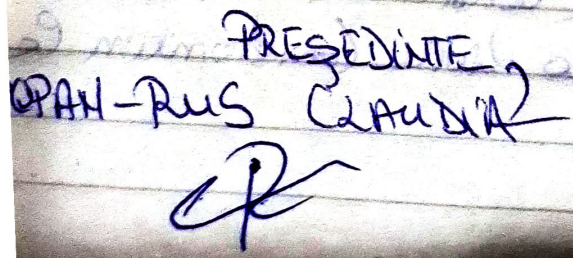 PREŞEDINTE,
OPAN-RUS CLAUDIA